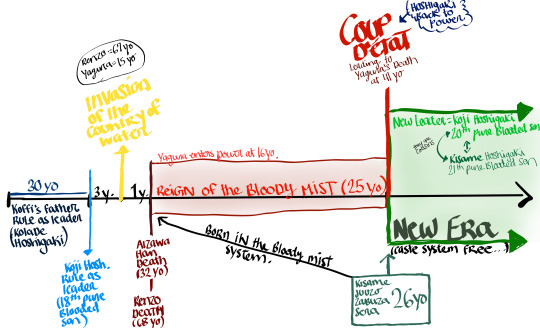 Renzo = 67 yo
Yagura = 15 yo
Invasion
of the
Country of
water
30 yo
Koffi's father
Rule as leader
(Kolade
Hoshigaki)
3 y.
1 y.
Koji Hosh.
Rule as
leader
(18th pure
Blooded
son)
Yagura enters power at 16 yo.
Reign of the Bloody Mist (25 yo)
Aizawa
Han
Death
(32 yo)
Renzo
Death
(68 yo)
Born in the Bloody mist
system.
Coup
D'etat
Leading to
Yagura's Death
at 41 yo
(Hoshigaki
Back to
Power)
New Leader = Koji Hoshigaki
20th pure Blooded son
Kisame Hoshigaki
21th pure Blooded son
New Era
(caste system free...)
Kisame
Juuzo
Zabuza
Sena
26 yo